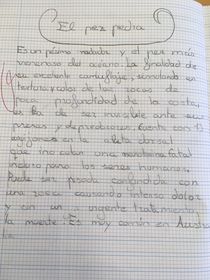 El pez piedra
Es un pésimo nadador y el pez más
venenoso del océano. La finalidad de
su excelente camuflaje, simulando en
textura y color de las rocas de
poca profundidad de la costa,
es la de ser invisible ante sus
presas y depredadores. Cuenta con 13
aguijones en la aleta dorsal
que inoculan una neurotoxina fatal
incluso para los seres humanos.
Puede ser pisada confundida con
una roca causando intenso dolor
y con un urgente tratamiento
la muerte. Es muy común en Austra